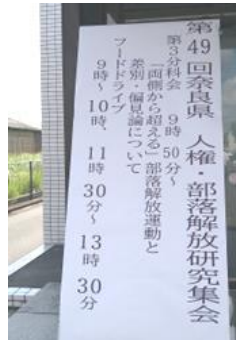 第49回奈良県 人権・部落解放研究集会
第3分科会 9時50分～
「両側から超える」部落解放運動と
差別・偏見論について
フードドライブ
9時～10時、11時30分～13時30分